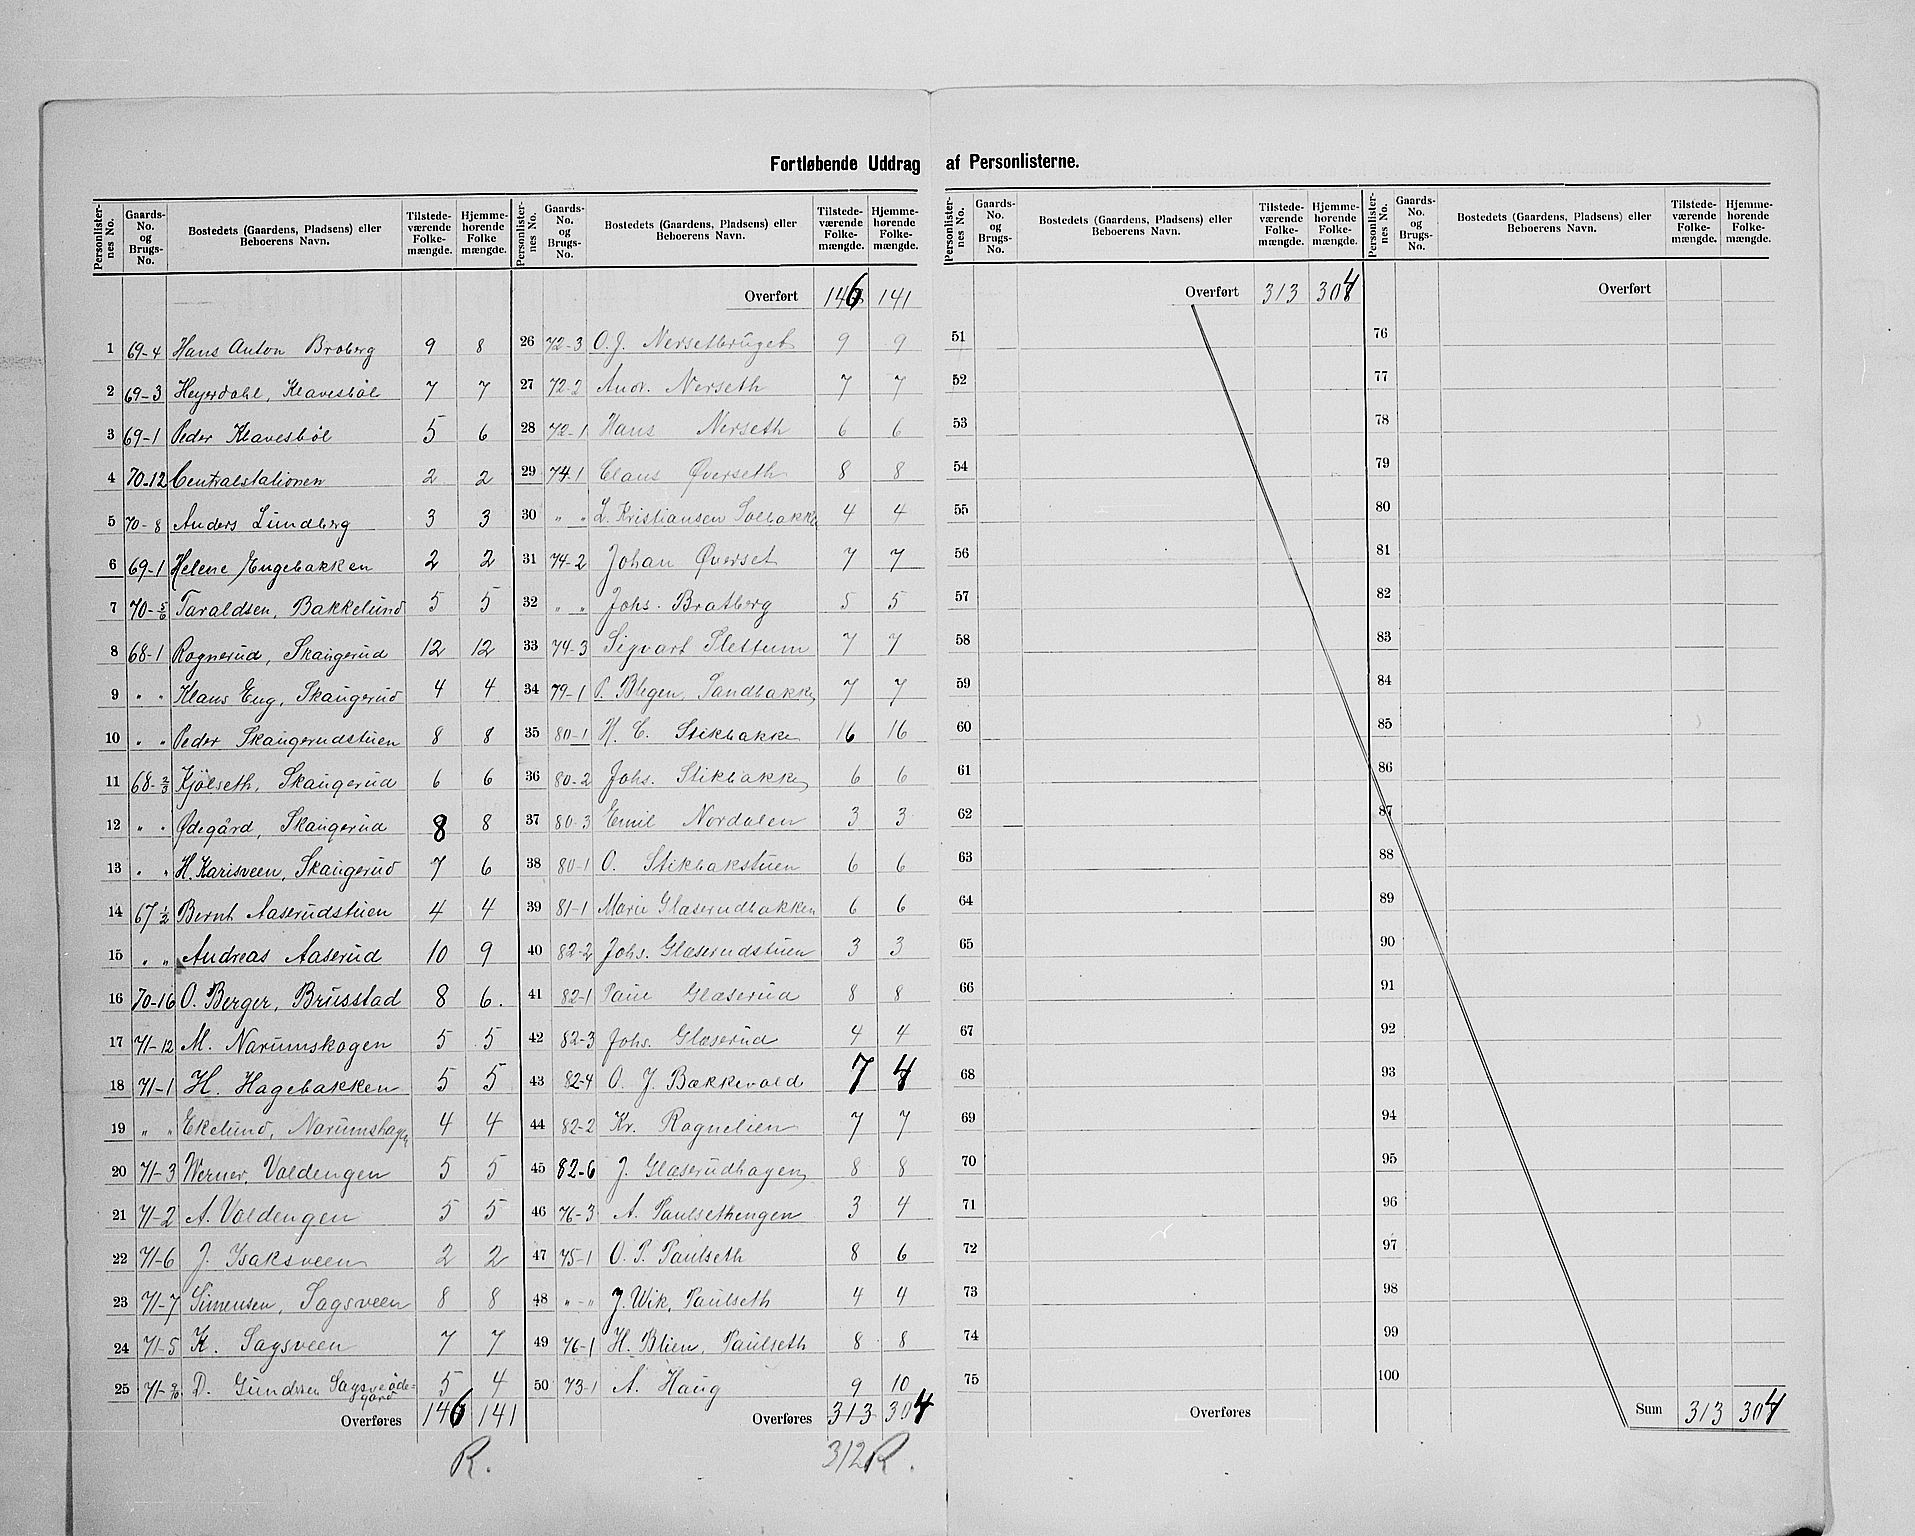 Fortløbende Uddrag af Personlisternes.
Personlister- nes No. | Gaards- No. og Brugs- No. | Bostedets (Gaardens, Pladsens) eller Beboerens Navn. | Tilstede- værende Folke- mængde. | Hjemme- hørende Folke mængde.
1 69-4 Hans Anton Broberg 9 8
2 69-3 Heyerdahl, Klavesbøl 7 7
3 69-1 Peder Klavesbøl 5 6
4 70-12 Centralstationen 2 2
5 70-8 Anders Lundberg 3 3
6 69-1 Helene Engebakken 2 2
7 70-5/6 Taraldsen, Bakkelund 5 5
8 68-1 Rognerud, Skaugerud 12 12
9 " " Klaus Eng, Skaugerud 4 4
10 " " Peder Skaugerudstuen 8 8
11 68-2/3 Kjölseth, Skaugerud 6 6
12 " " Ødegård, Skaugerud 8 8
13 " " H. Karisveen, Skaugerud 7 6
14 67 1/2 Bernt Aaserudstuen 4 4
15 " " Andreas Aaserud 10 9
16 70-16 O. Berger, Brusstad 8 6.
17 71-12 M. Narumskogen 5 5
18 71-1 H. Hagebakken 5 5
19 " " Ekelund, Narumshagen 4 4
20 71-3 Werner, Valdengen 5 5
21 71-2 A. Valdengen 5 5
22 71-6 J. Isaksveen 2 2
23 71-7 Simensen, Sagsveen 8 8
24 71-5 K. Sagsveen 7 7
25 71-9/10 D. Gundersen Sagsveøde- gård 5 4
Overføres 146 141
R.
Personlister- nes No. | Gaards- No. og Brugs- No. | Bostedets (Gaardens, Pladsens) eller Beboerens Navn. | Tilstede- værende Folke- mængde. | Hjemme- hørende Folke- mængde.
Overført 146 141
26 72-3 O. J. Nersetbruget 9 9
27 72-2 Andr. Nerseth 7 7
28 72-1 Hans Nerseth 6 6
29 74-1 Claus Øverseth 8 8
30 " " L. Kristiansen Solbakke 4 4
31 74-2 Johan Øverset 7 7
32 " " Johs. Bratberg 5 5
33 74-3 Sigvart Slettum 7 7
34 79-1 P. Blegen, Sandbakken 7 7
35 80-1 H. C. Stikbakke 16 16
36 80-2 Johs. Stikbakke 6 6
37 80-3 Emil Nordalen 3 3
38 80-1 O. Stikbakstuen 6 6
39 81-1 Marie Glæserudbakken 6 6
40 82-2 Johs. Glæserudstuen 3 3
41 82-1 Paul Glæserud 8 8
42 82-3 Johs. Glæserud 4 4
43 82-4 O. J. Bækkevold 7 4
44 82-2 Kr. Rognelien 7 7
45 82-6 J. Glæserudhagen 8 8
46 76-3 A. Paulsethengen 3 4
47 75-1 O. P. Paulseth 8 6
48 " - " J. Wik, Paulseth 4 4
49 76-1 H. Blien, Paulseth 8 8
50 73-1 A. Haug 9 10
Overføres 313 304
312 R.
Personlister- nes No. | Gaards- No. og Brugs- No. | Bostedets (Gaardens, Pladsens) eller Beboerens Navn. | Tilstede- værende Folke- mængde. | Hjemme- hørende Folke- mængde.
Overført 313 304
51
52
53
54
55
56
57
58
59
60
61
62
63
64
65
66
67
68
69
70
71
72
73
74
75
Overføres
Personlister- nes No. | Gaards- No. og Brugs- No. | Bostedets (Gaardens, Pladsens) eller Beboerens Navn. | Tilstede- værende Folke- mængde. | Hjemme- hørende Folke- mængde.
Overført
76
77
78
79
80
81
82
83
84
85
86
87
88
89
90
91
92
93
94
95
96
97
98
99
100
Sum 313 304